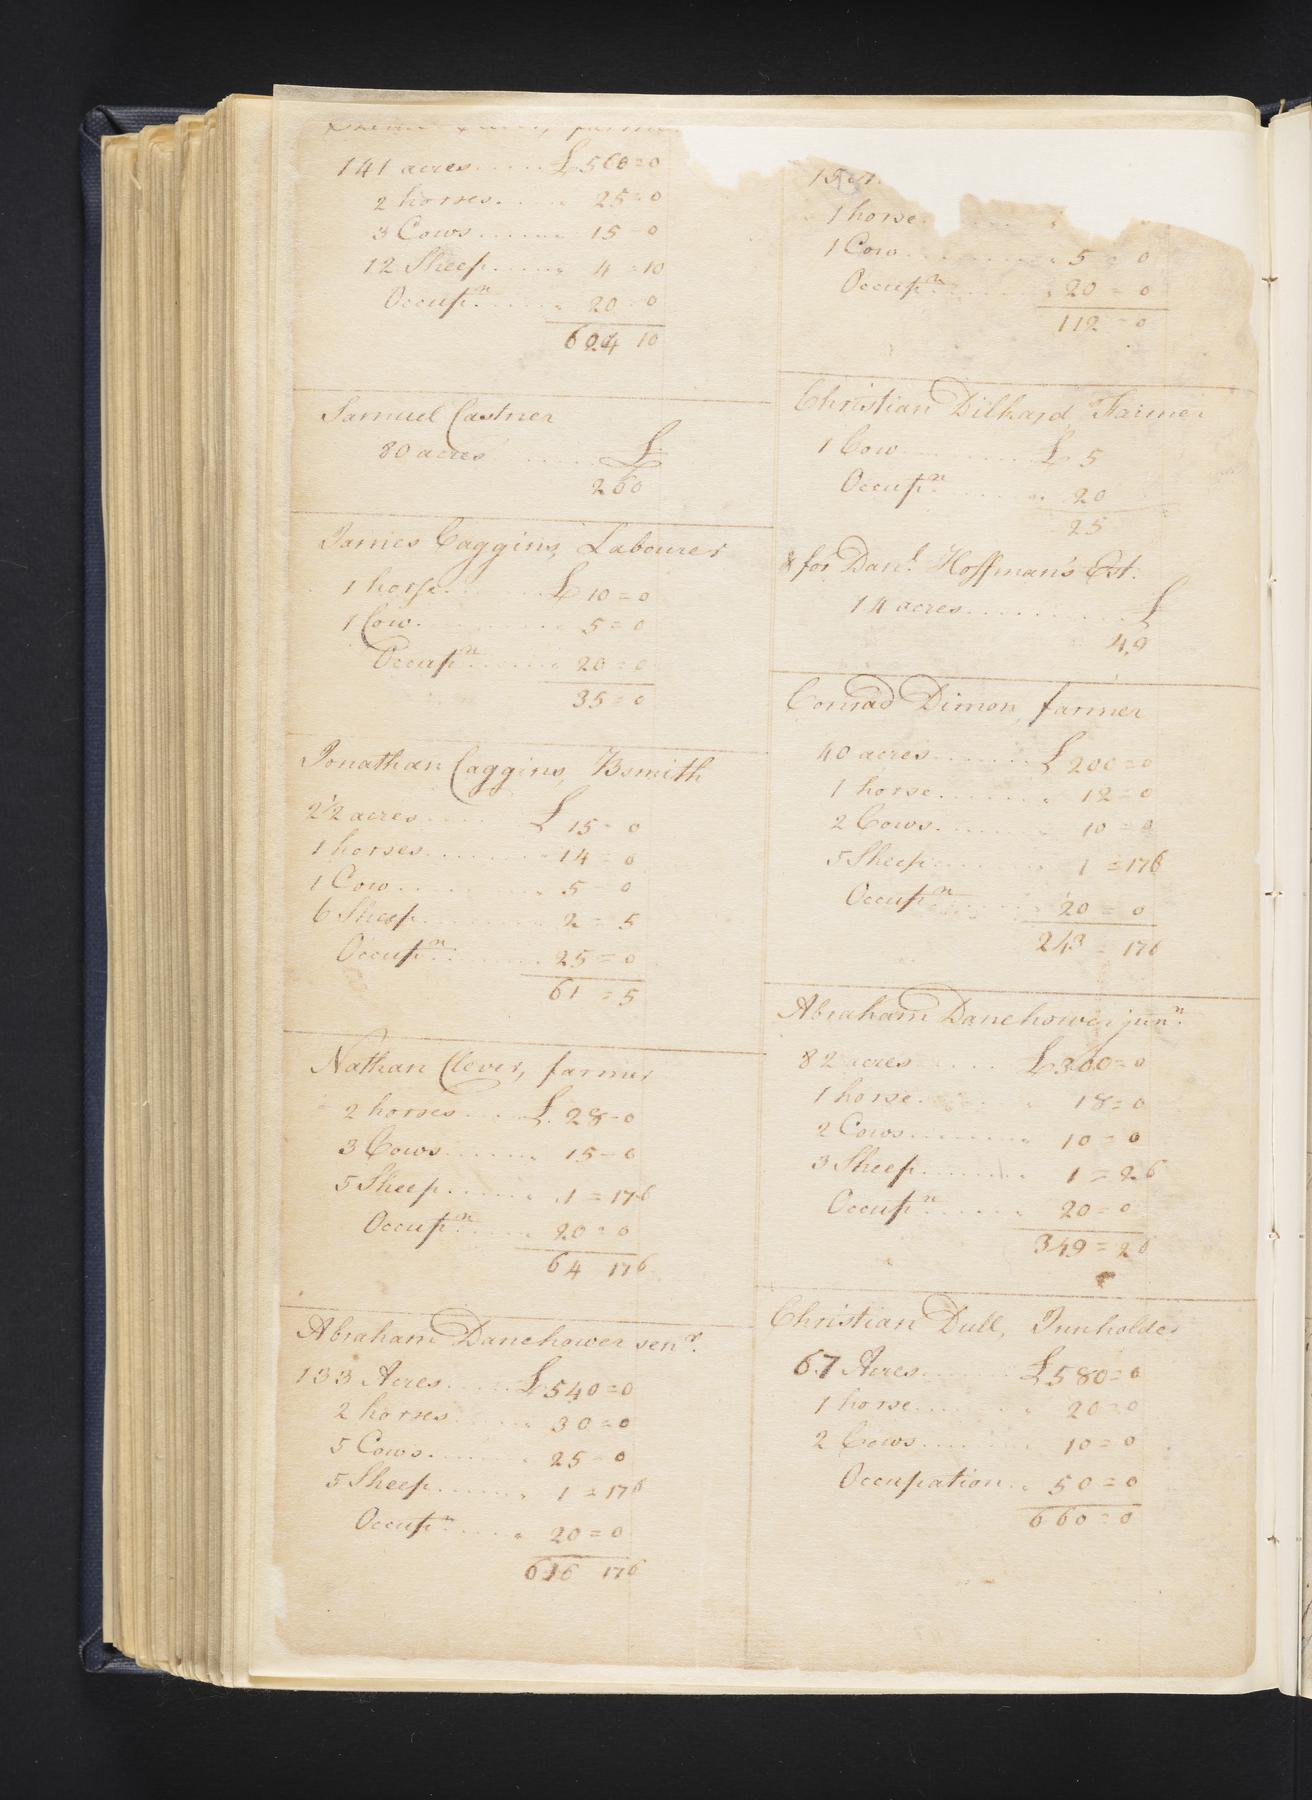 farmer
141 acres ..... £560=0
2 horses. .... 25=0
3 Cows ....... 15=0
12 Sheep ...... 4=10
Occupn. ....... 20=0
624 10
Samuel Castner
80 acres ..... £
260
James Caggins, Labourer
1 horse. ..... £10=0
1 Cow. ....... 5=0
Occupn. ...... 20=0
35=0
Jonathan Caggins, Bsmith
2 1/2 acres ..... £15=0
1 horses. ..... 14=0
1 Cow ....... 5=0
6 Sheep ....... 2=5
Occupn. ...... 25=0
61=5
Nathan Clever, farmer
2 horses .... £28=0
3 Cows ....... 15=0
5 Sheep ...... 1=176
Occupn. ..... 20=0
64 176
Abraham Danehower senr.
133 Acres ..... £540=0
2 horses ...... 30=0
5 Cows. ...... 25=0
5 Sheep ....... 1=176
Occupn. ..... 20=0
616 176
1 horse.
1 Cow ........ 5=0
Occupn. ....... 20=0
112=0
Christian Dilhard, Farmer
1 Cow ........ £5
Occupn. ....... 20
25
& for Danl. Hoffman's Est.
14 acres ........ £
49
Conrad Dimon, farmer
40 acres ....... £200=0
1 horse. ....... 12=0
2 Cows. ....... 10=0
5 Sheep ....... 1=176
Occupn. ....... 20=0
243=176
Abraham Danehower junr.
82 acres ..... £300=0
1 horse. ...... 18=0
2 Cows ........ 10=0
3 Sheep ........ 1=26
Occupn. ...... 20=0
349=26
Christian Dull, Innholder
67 Acres ....... £580=0
1 horse ....... 20=0
2 Cows ....... 10=0
Occupation .. 50=0
660=0